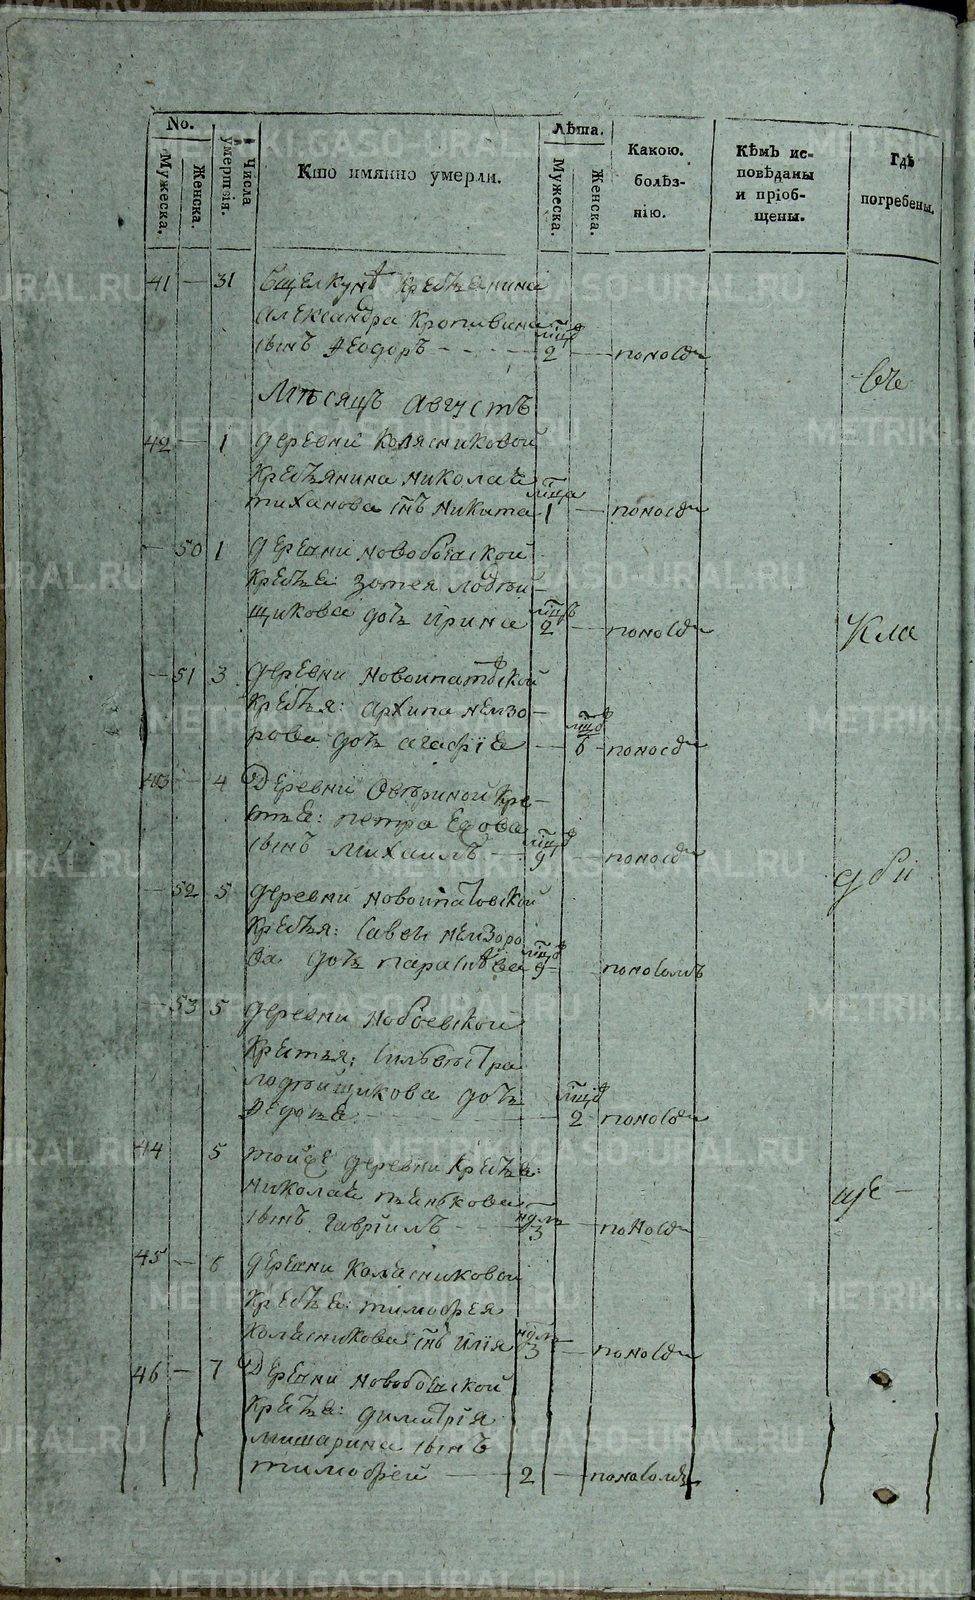 No.
Мужеска.
Женска.
Числа умертвія.
Кто имянно умерли.
Лѣта.
Мужеска.
Женска.
Какою. болѣз- нію.
Кѣмъ ис- повѣданы и пріоб- щены.
Гдѣ погребены.
41 — 31 Сщелкунъ Кресть­янина
александра Кропивина
сынъ Ѳеодоръ 2 — поносомъ
Мѣсяцъ Августъ
42 — 1 деревни Колясниковой
Крестьянина николая
тиханова снъ никита 1 — поносомъ
— 50 1 деревни новобоевской
Крестья: зотея лодѣй-
щикова дочь ирина 2 — поносомъ
— 51 3 деревни новоипатовской
Крестья: архипа немзо-
рова дочь агафія — 6 — поносомъ
43 — 4 Деревни Овериной Кре-
стья: петра Едова
сынъ михаилъ — 9 — поносомъ
— 52 5 деревни новоипатовской
Крестья: саввы немзоро
ва дочь параскева 9 поносомъ
— 53 5 деревни новобоевской
Крестья: сильвестра
лодѣйщикова дочь
Ѳедотья — 2 — поносомъ
44 5 тойже деревни Крестья:
николая пьянькова
сынъ гавріилъ — 3 — поносомъ
45 — 6 деревни Колясниковой
Крестья: тимофея
колясникова снъ илія 3 — поносомъ
46 — 7 Деревни новобоевской
Крестья: димитрія
мишарина сынъ
тимофей — 2 — поносомъ
Кла
дби
ще